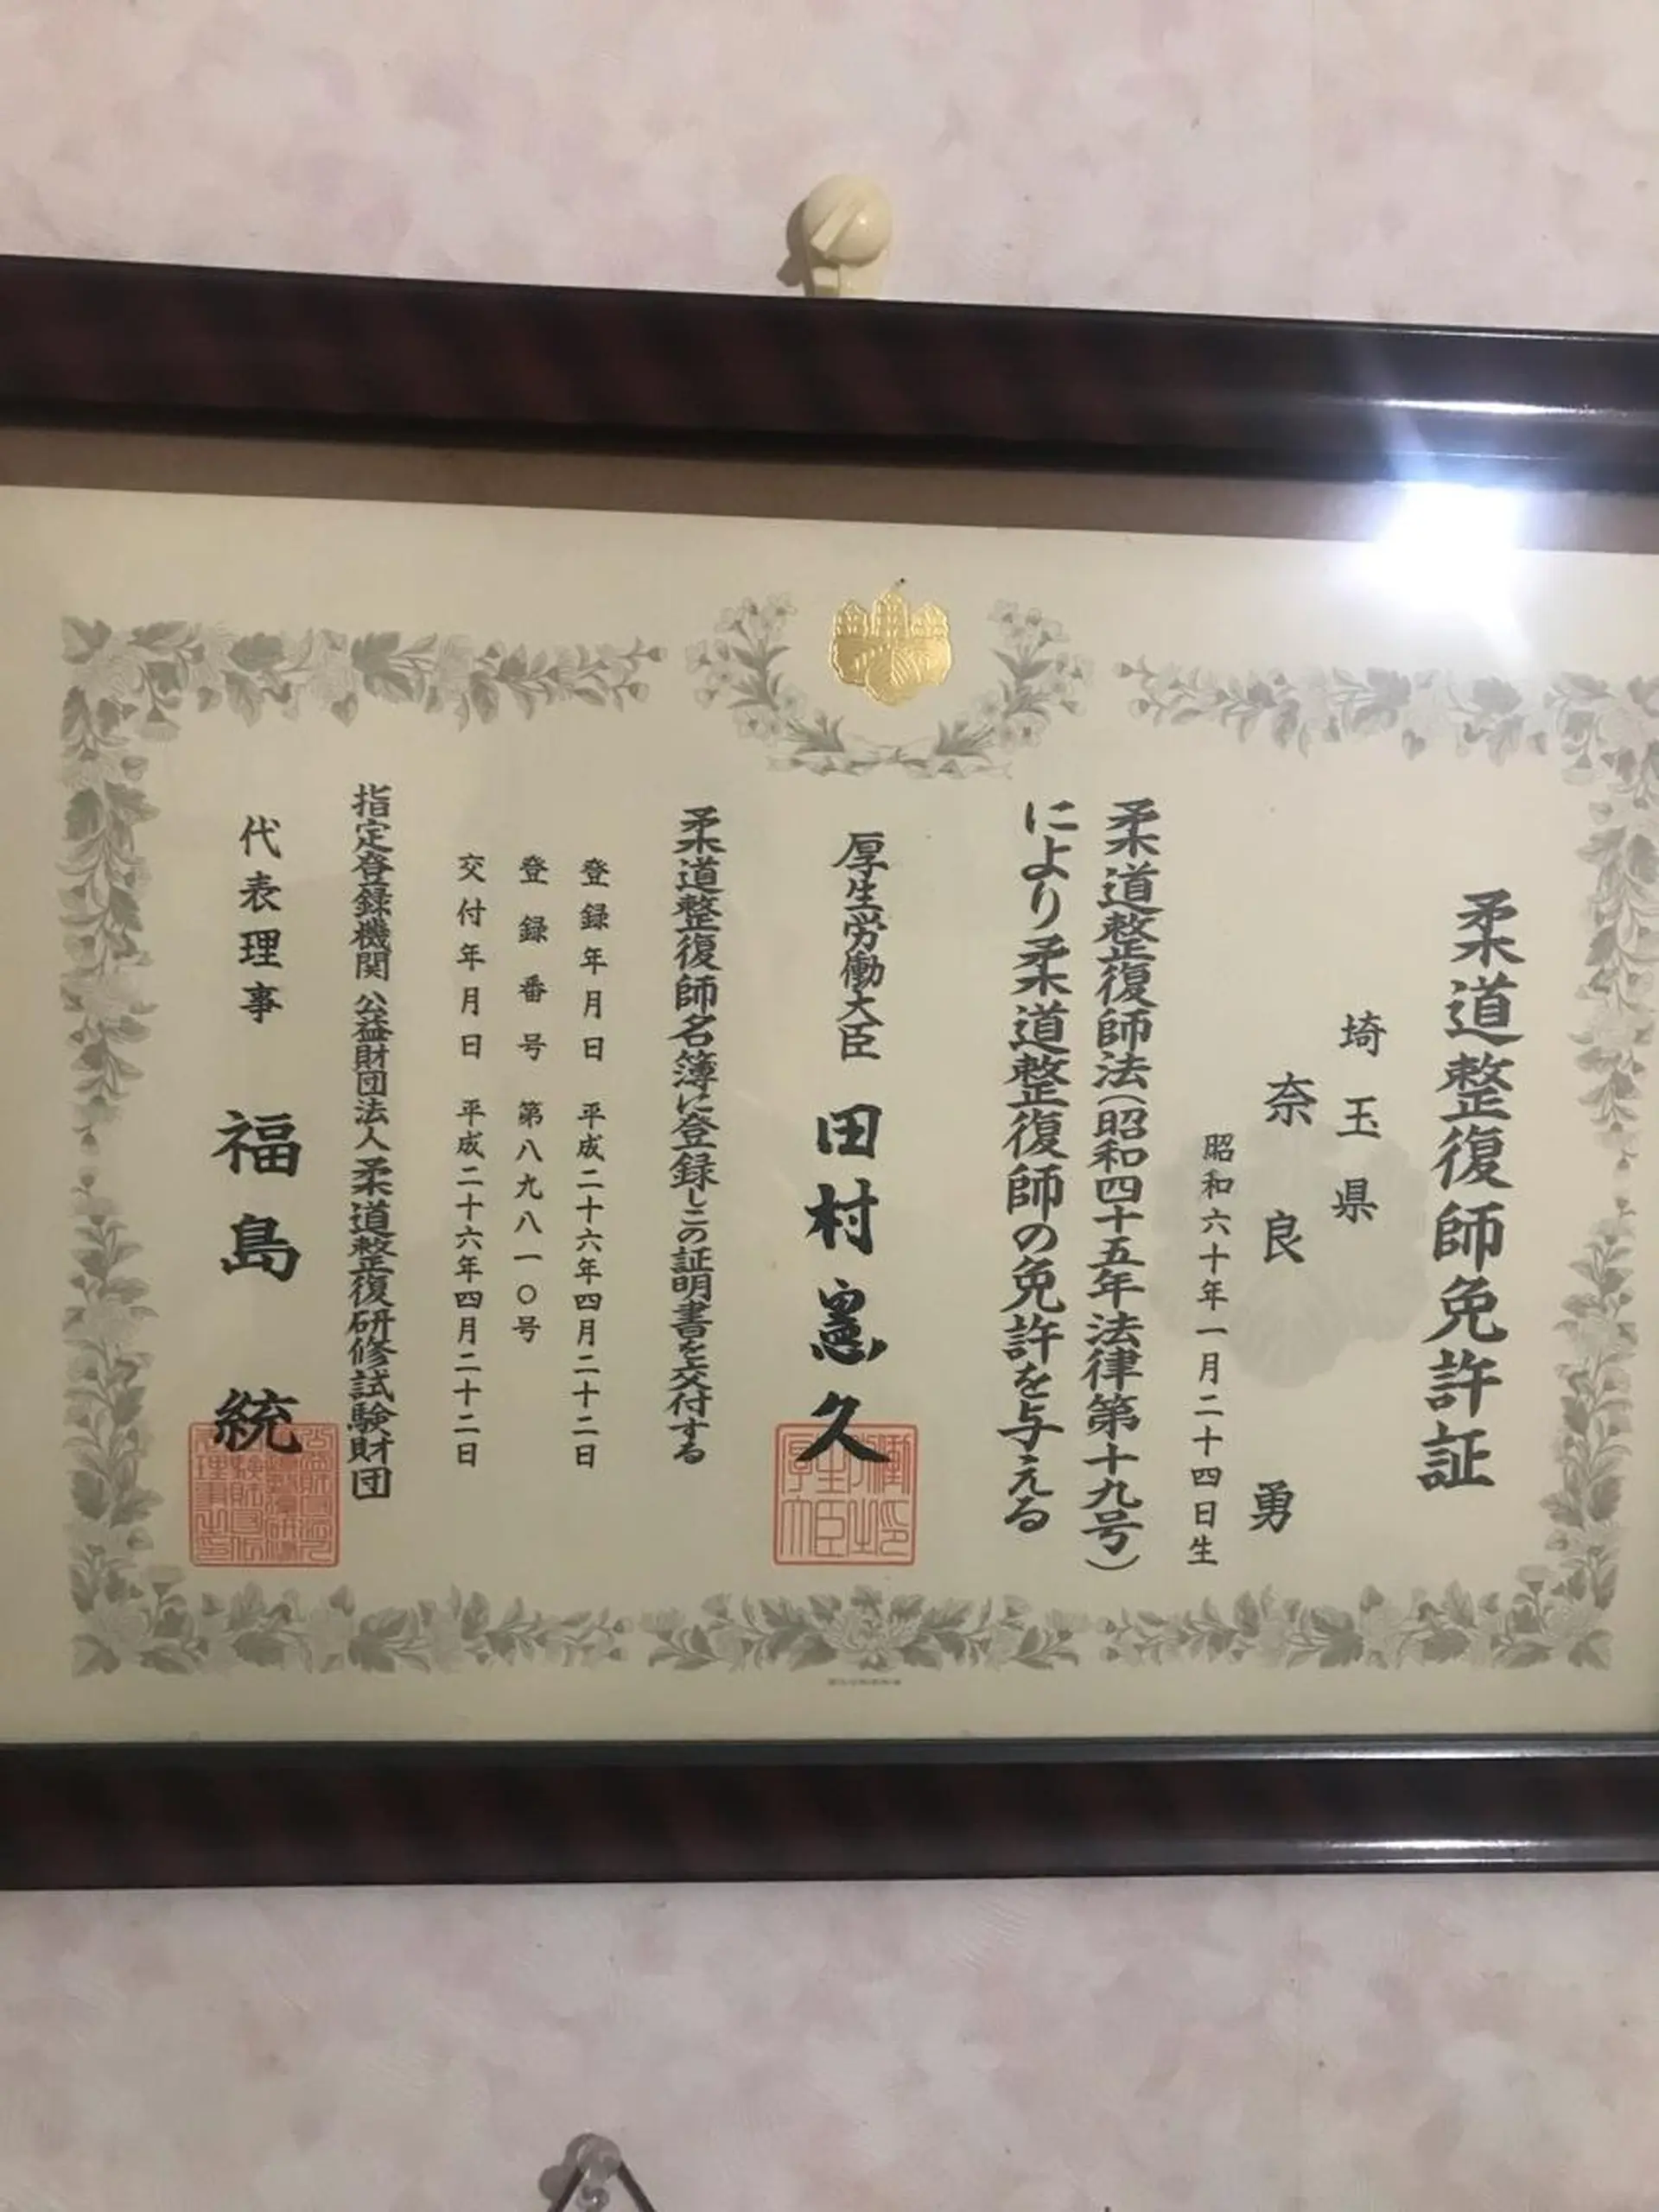 柔道整復師免許証
埼玉県
奈良勇
昭和六十年一月二十四日生
柔道整復師法（昭和四十五年法律第十九号）
により柔道整復師の免許を与える
厚生労働大臣 田村憲久
柔道整復師名簿に登録しこの証明書を交付する
登録年月日 平成二十六年四月二十二日
登録番号 第八九八一〇号
交付年月日 平成二十六年四月二十二日
指定登録機関 公益財団法人柔道整復研修試験財団
代表理事 福島統